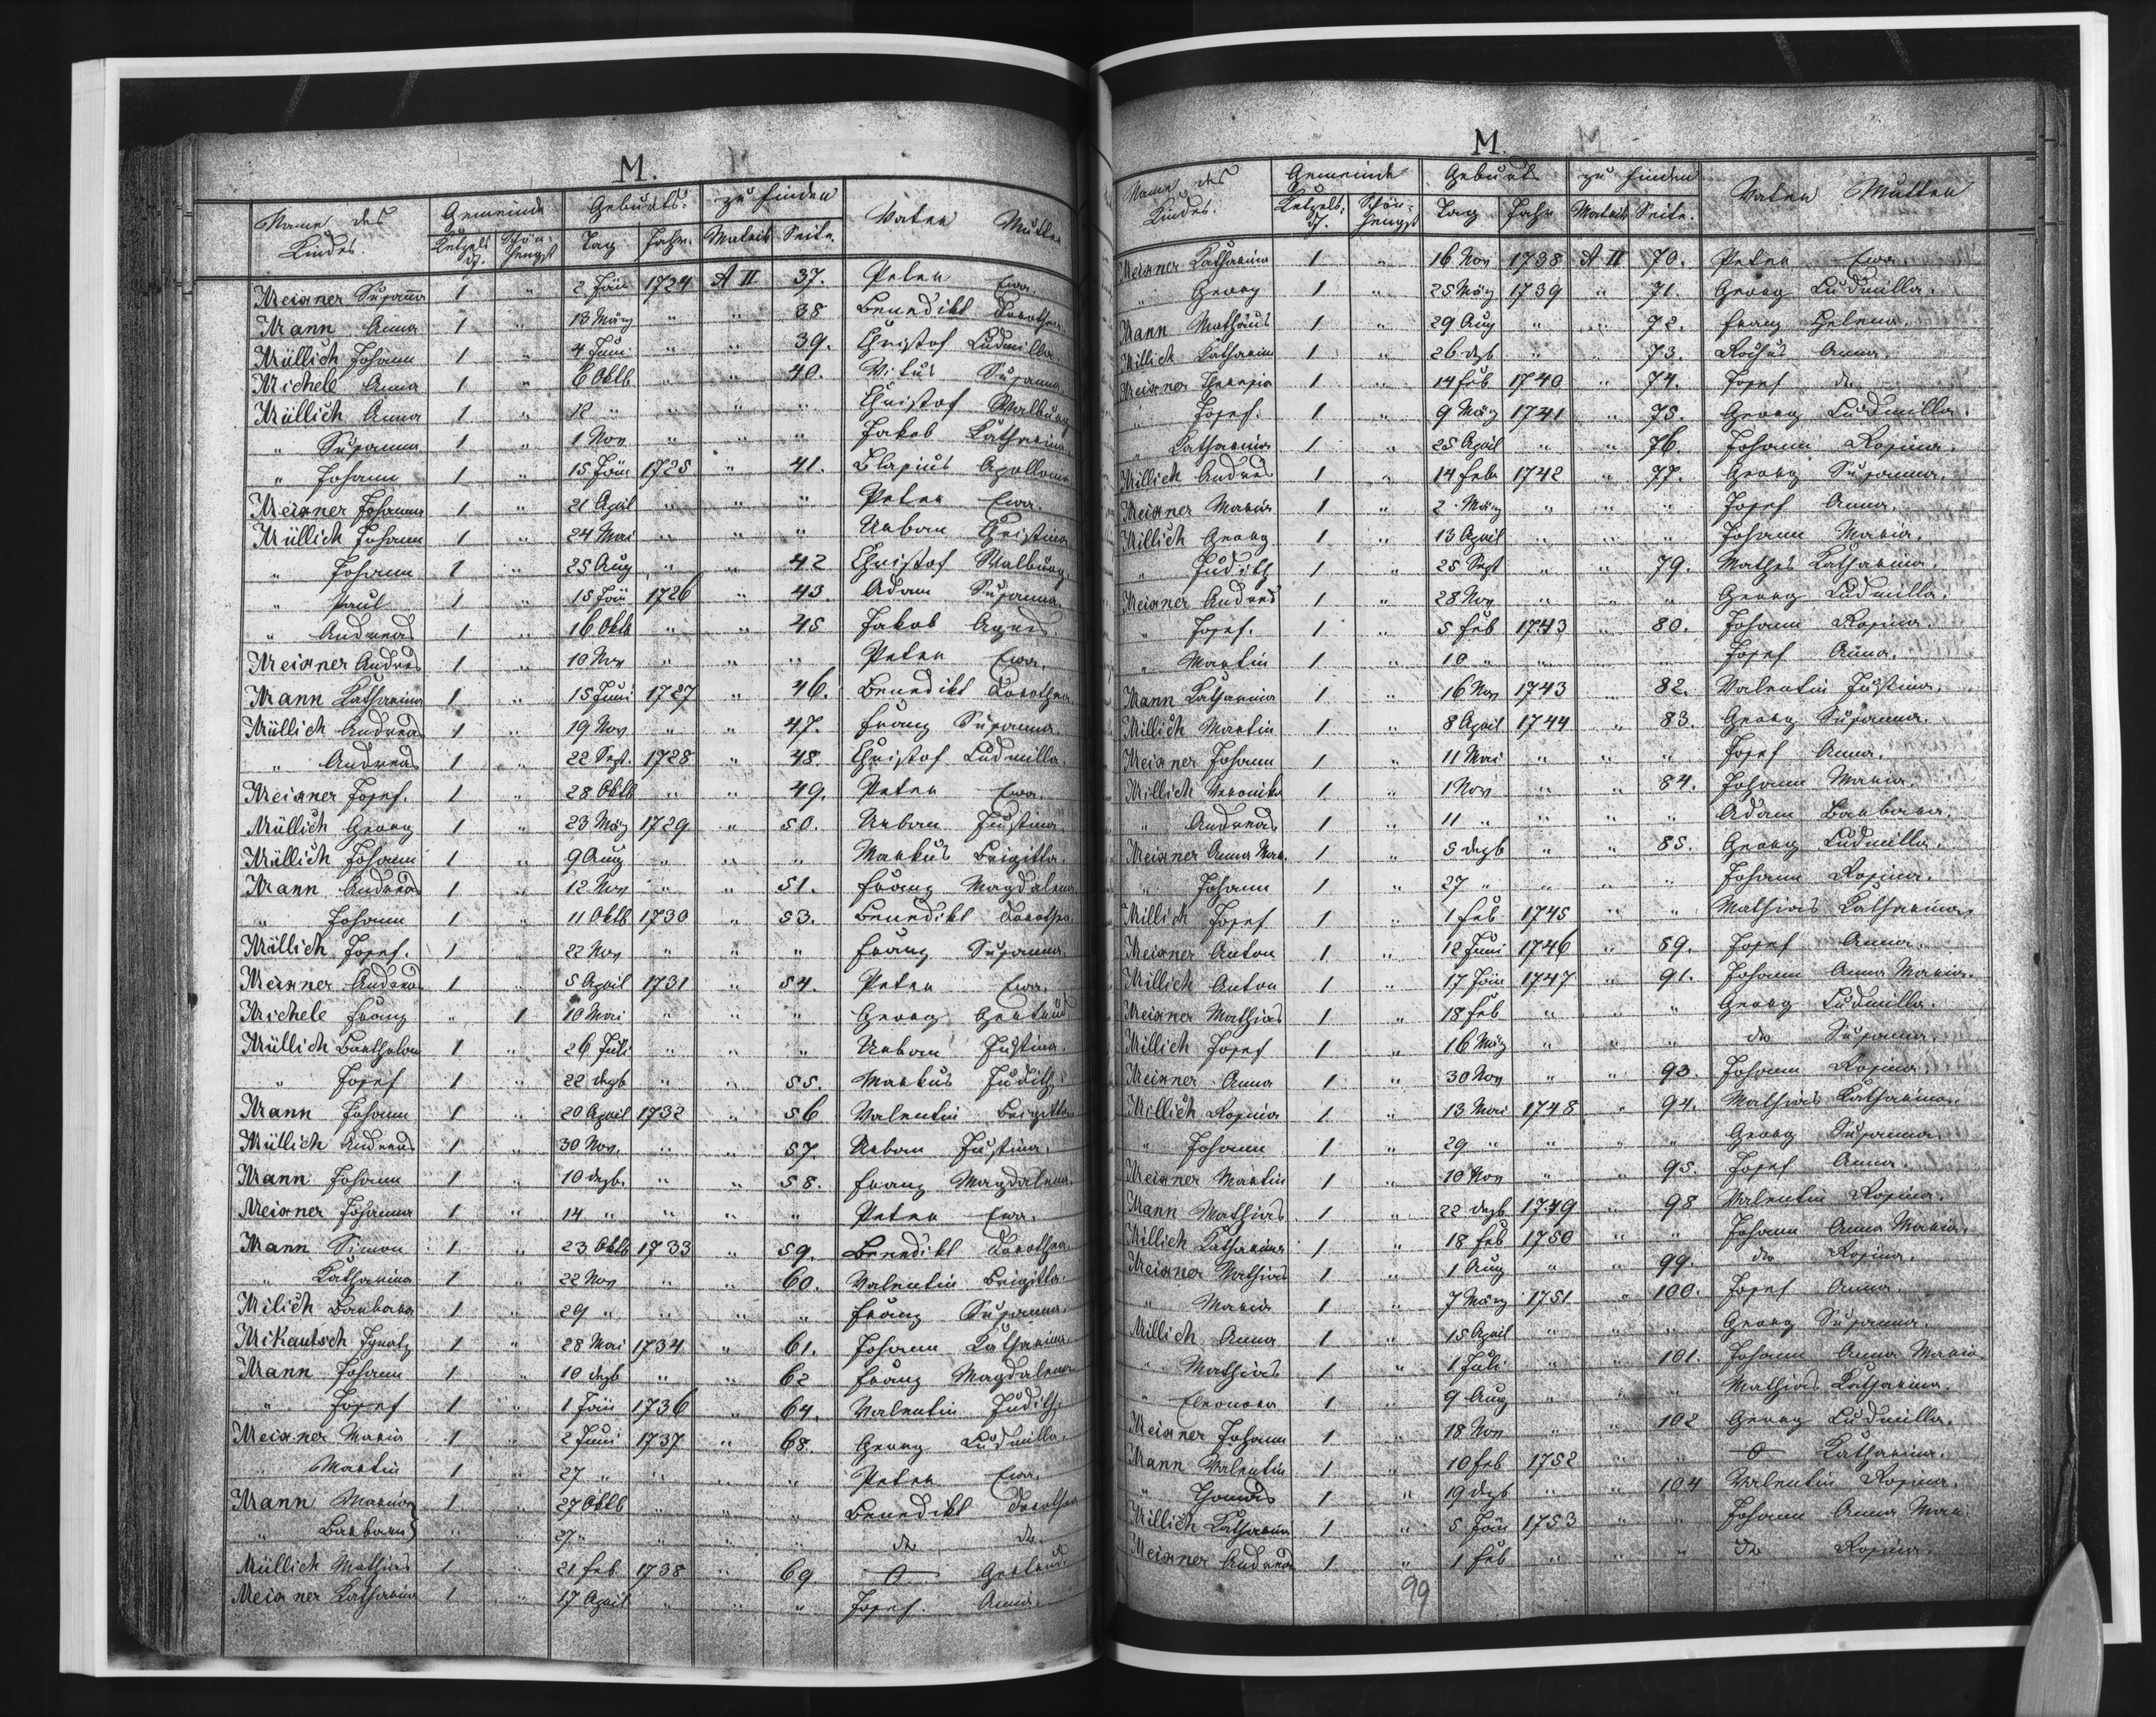 M.
Name des Kindes. Gemeinde Geburts- zu finden Vater Mutter
Ketzels- df. Schön- hengst Tag Jahr. Matrik Seite.
Meixner Susanna 1 " 2 Jän 1724 A II 37. Peter Ewa
Mann Anna 1 " 13 März " " 38 Benedikt Dorothea
Müllich Johann 1 " 4 Juni " " 39. Christof Ludmilla
Michele Anna 1 " 6 Oktb " " 40. Vitus Susanna
Müllich Anna 1 " 18 " " " " Christof Walburg
" Susanna 1 " 1 Nov. " " " Jakob Katharina
" Johann 1 " 15 Jän 1725 " 41. Blasius Apollonia
Meixner Johanna 1 " 21 April " " " Peter Ewa.
Müllich Johann 1 " 24 Mai " " " Urban Christina
" Johann 1 " 25 Aug " " 42 Christof Walburg.
" Paul 1 " 15 Jän 1726 " 43. Adam Susanna
" Andreas 1 " 16 Oktb " " 45 Jakob Agnes
Meixner Andreas 1 " 10 Nov " " " Peter Ewa.
Mann Katharina 1 " 15 Juni 1727 " 46. Benedikt Dorothea
Müllich Andreas 1 " 19 Nov " " 47. Franz Susanna
" Andreas 1 " 22 Sept. 1728 " 48. Christof Ludmilla.
Meixner Josef. 1 " 28 Oktb " " 49. Peter Ewa.
Müllich Georg 1 " 23 März 1729 " 50. Urban Justina
Müllich Johann 1 " 9 Aug " " " Markus Brigitta.
Mann Andreas 1 " 12 Nov " " 51. Franz Magdalena
" Johann 1 " 11 Oktb 1730 " 53. Benedikt Dorothea
Müllich Josef. 1 " 22 Nov " " " Franz Susanna.
Meixner Andreas 1 " 5 April 1731 " 54. Peter Ewa.
Michele Franz " 1 10 Mai " " " Georg Gertrud
Müllich Bartholom 1 " 26 Juli " " " Urban Justina.
" Josef 1 " 22 dezb " " 55. Markus Judith.
Mann Johann 1 " 20 April 1732 " 56 Valentin Brigitta
Müllich Andreas 1 " 30 Nov. " " 57. Urban Justina.
Mann Johann 1 " 10 dezb. " " 58. Franz Magdalena.
Meixner Johanna 1 " 14 " " " " Peter Ewa.
Mann Simon 1 " 23 Oktb 1733 " 59. Benedikt Dorothea
" Katharina 1 " 22 Nov " " 60. Valentin Brigitta.
Milich Barbara 1 " 29 " " " " Franz Susanna.
Mikautsch Ignatz 1 " 28 Mai 1734 " 61. Johann Katharina
Mann Johann 1 " 10 dezb " " 62 Franz Magdalena
" Josef 1 " 1 Jän 1736 " 64. Valentin Judith.
Meixner Maria 1 " 2 Juni 1737 " 68. Georg Ludmilla.
" Martin 1 " 27 " " " " Peter Ewa.
Mann Maria 1 " 27 Oktb " " " Benedikt Dorothea
" Barbara } " " 27 " " " " do do.
Müllich Mathias 1 " 21 feb 1738 " 69. O Gertrud
Meixner Katharina 1 " 17 April " " " Josef. Anna.
M.
Name des Kindes. Gemeinde Geburts zu finden Vater Mutter
Ketzels- df. Schön- hengst Tag Jahr Matrik Seite.
Meixner Katharina 1 " 16 Nov 1738 A II 70. Peter Ewa.
" Georg 1 " 25 März 1739 " 71. Georg Ludmilla.
Mann Mathäus 1 " 29 Aug " " 72. Franz Helena.
Millich Katharina 1 " 26 dezb " " 73. Rochus Anna.
Meixner Theresia 1 " 14 feb 1740 " 74. Josef do
" Josef. 1 " 9 März 1741 " 75. Georg Ludmilla.
" Katharina 1 " 25 April " " 76. Johann Rosina.
Millich Andreas 1 " 14 feb 1742 " 77. Georg Susanna.
Meixner Maria 1 " 2 März " " " Josef Anna.
Millich Georg 1 " 13 April " " " Johann Maria.
" Judith 1 " 25 Sept " " 79. Mathes Katharina.
Meixner Andreas 1 " 28 Nov " " " Georg Ludmilla.
" Josef. 1 " 5 feb 1743 " 80. Johann Rosina.
" Martin 1 " 10 " " " " Josef Anna.
Mann Katharina 1 " 16 Nov 1743 " 82. Valentin Justina.
Millich Martin 1 " 8 April 1744 " 83. Georg Susanna.
Meixner Johann 1 " 11 Mai " " " Josef Anna.
Millich Veronika 1 " 1 Nov " " 84. Johann Maria.
" Andreas 1 " 11 " " " " Adam Barbara.
Meixner Anna Mar. 1 " 5 dezb " " 85. Georg Ludmilla.
" Johann 1 " 27 " " " " Johann Rosina.
Millich Josef 1 " 1 feb 1745 " " Mathias Katharina
Meixner Anton 1 " 12 Juni 1746 " 89. Josef Anna.
Millich Anton 1 " 17 Jän 1747 " 91. Johann Anna Maria.
Meixner Mathias 1 " 18 feb " " " Georg Ludmilla.
Millich Josef 1 " 16 März " " " do Susanna.
Meixner Anna 1 " 30 Nov " " 93. Johann Rosina.
Millich Rosina 1 " 13 Mai 1748 " 94. Mathias Katharina.
" Johann 1 " 29 " " " " Georg Susanna.
Meixner Martin 1 " 10 Nov " " 95. Josef Anna.
Mann Mathias 1 " 22 dezb 1749 " 98 Valentin Rosina.
Millich Katharina 1 " 18 feb 1750 " " Johann Anna Maria.
Meixner Mathias 1 " 1 Aug " " 99. do Rosina.
" Maria 1 " 7 März 1751 " 100. Josef Anna.
Millich Anna 1 " 15 April " " " Georg Susanna.
" Mathias 1 " 1 Juli " " 101. Johann Anna Maria.
" Eleonora 1 " 9 Aug " " " Mathias Katharina.
Meixner Johann 1 " 18 Nov " " 102 Georg Ludmilla.
Mann Valentin 1 " 10 feb 1752 " " O Katharina.
" Thomas 1 " 19 dezb " " 104 Valentin Rosina.
Millich Katharina 1 " 5 Jän 1753 " " Johann Anna Mar.
Meixner Andreas 1 " 1 feb " " " do Rosina.
99